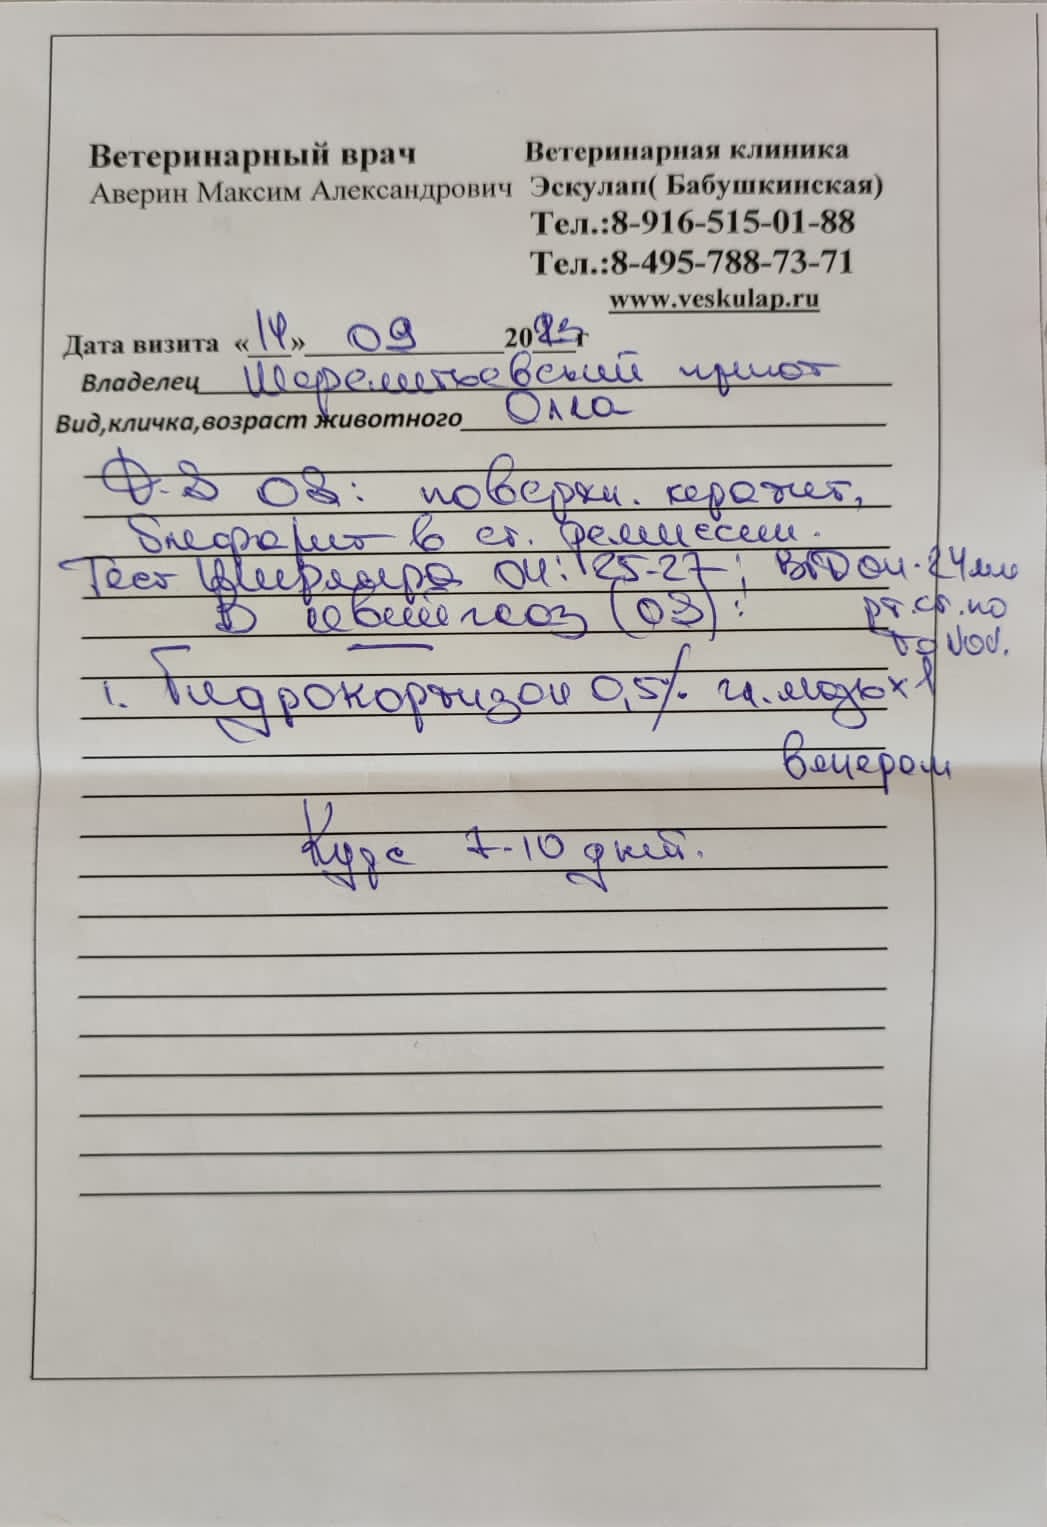 Ветеринарный врач
Аверин Максим Александрович
Ветеринарная клиника
Эскулап( Бабушкинская)
Тел.:8-916-515-01-88
Тел.:8-495-788-73-71
www.veskulap.ru
Дата визита «14» 09 2023г
Владелец Шереметьевский приют
Вид,кличка,возраст животного Олла
D-S OS: поверхн. кератит,
блефарит в ст. ремиссии.
Тест Ширмера OU: 25-27; ВГД OU-24мм
рт.ст.по
ToVoV.
В левый глаз (OS):
1. Гидрокортизон 0,5% гл.мазь х 1
вечером
Курс 7-10 дней.